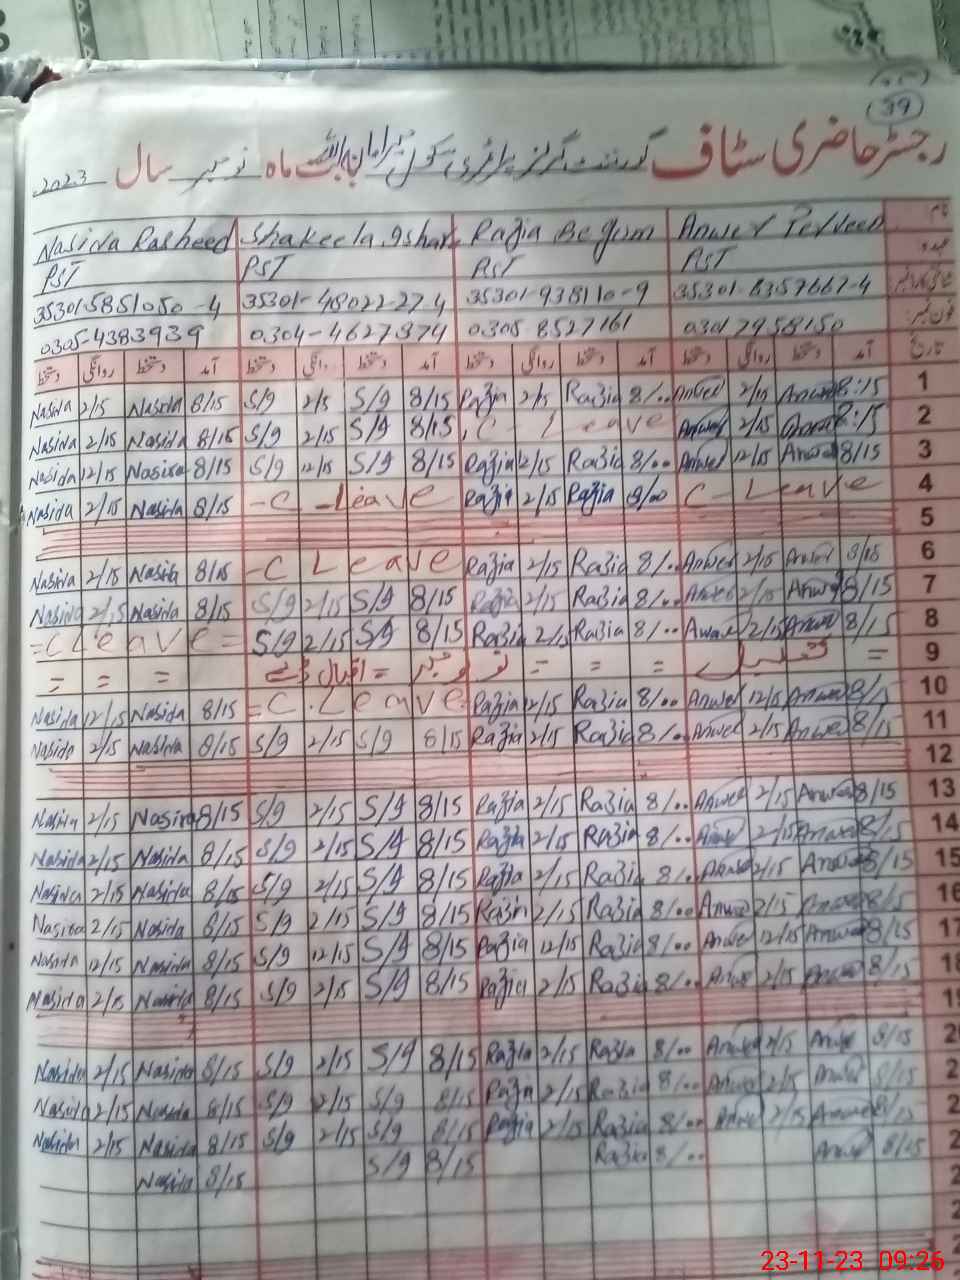 39
رجسٹر حاضری سٹاف گورنمنٹ گرلز پرائمری سکول بابت ماہ نومبر سال 2023
Nasira Rasheed Shakeela Ishaq Razia Begum Anwer Perveen نام
PST PST PST PST عہدہ
35301-5851050-4 35301-48022-27-4 35301-938110-9 35301-8357667-4
0305-4383939 0304-4627374 0305-8527161 03017958150 فون نمبر
دستخط روانگی دستخط آمد دستخط روانگی دستخط آمد دستخط روانگی دستخط آمد دستخط روانگی دستخط آمد تاریخ
Nasira 2/15 Nasira 8/15 S/9 2/15 S/9 8/15 Razia 2/15 Razia 8/.. Anwer 2/15 Anwer 8:15 1
Nasira 2/15 Nasira 8/15 S/9 2/15 S/9 8/15 C - Leave Anwer 2/15 Anwer 8:15 2
Nasira 12/15 Nasira 8/15 S/9 12/15 S/9 8/15 Razia 2/15 Razia 8/.. Anwer 12/15 Anwer 8/15 3
Nasira 2/15 Nasira 8/15 - C - Leave Razia 2/15 Razia 8/00 C - Leave 4
5
Nasira 2/15 Nasira 8/15 - C Leave Razia 2/15 Razia 8/.. Anwer 2/15 Anwer 8/15 6
Nasira 2/15 Nasira 8/15 S/9 2/15 S/9 8/15 Razia 2/15 Razia 8/.. Anwer 2/15 Anwer 8/15 7
= C Leave = S/9 2/15 S/9 8/15 Razia 2/15 Razia 8/.. Anwer 2/15 Anwer 8/15 8
= = = اقبال ڈے = نو نومبر = = = تعطیل = 9
Nasira 12/15 Nasira 8/15 = C. Leave Razia 12/15 Razia 8/.. Anwer 12/15 Anwer 8/15 10
Nasira 2/15 Nasira 8/15 S/9 2/15 S/9 8/15 Razia 2/15 Razia 8/.. Anwer 2/15 Anwer 8/15 11
12
Nasira 2/15 Nasira 8/15 S/9 2/15 S/9 8/15 Razia 2/15 Razia 8/.. Anwer 2/15 Anwer 8/15 13
Nasira 2/15 Nasira 8/15 S/9 2/15 S/9 8/15 Razia 2/15 Razia 8/.. Anwer 2/15 Anwer 8/15 14
Nasira 2/15 Nasira 8/15 S/9 2/15 S/9 8/15 Razia 2/15 Razia 8/.. Anwer 2/15 Anwer 8/15 15
Nasira 2/15 Nasira 8/15 S/9 2/15 S/9 8/15 Razia 2/15 Razia 8/.. Anwer 2/15 Anwer 8/15 16
Nasira 12/15 Nasira 8/15 S/9 12/15 S/9 8/15 Razia 12/15 Razia 8/.. Anwer 12/15 Anwer 8/15 17
Nasira 2/15 Nasira 8/15 S/9 2/15 S/9 8/15 Razia 2/15 Razia 8/.. Anwer 2/15 Anwer 8/15 18
19
Nasira 2/15 Nasira 8/15 S/9 2/15 S/9 8/15 Razia 2/15 Razia 8/.. Anwer 2/15 Anwer 8/15 2
Nasira 2/15 Nasira 8/15 S/9 2/15 S/9 8/15 Razia 2/15 Razia 8/.. Anwer 2/15 Anwer 8/15 2
Nasira 2/15 Nasira 8/15 S/9 2/15 S/9 8/15 Razia 2/15 Razia 8/.. Anwer 2/15 Anwer 8/15 2
Nasira 8/15 S/9 8/15 Razia 8/.. Anwer 8/15 2
2
2
2
23-11-23 09:26